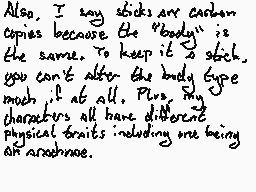 Also, I say sticks are carbon
copies because the "body" is
the same. To keep it a stick,
you can't alter the body type
much if at all. Plus, my
characters all have different
physical traits including one being
an arachnae.